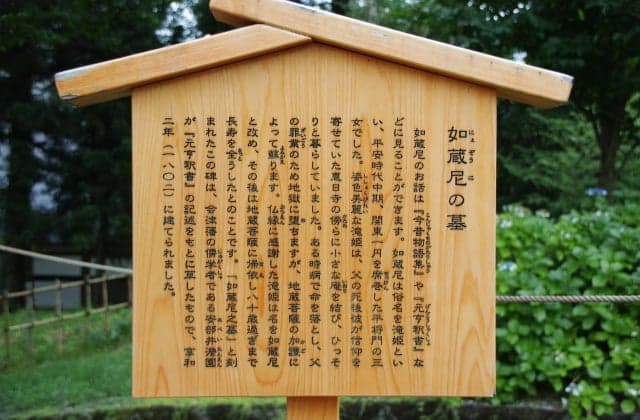 如蔵尼の墓
如蔵尼のお話は『今昔物語集』や『元亨釈書』な
どに見ることができます。如蔵尼は俗名を滝姫とい
い、平安時代中期、関東一円を席巻した平将門の三
女でした。姿色美麗な滝姫は、父の死後彼が信仰を
寄せていた恵日寺の傍らに小さな庵を結び、ひっそ
りと暮らしていました。ある時病で命を落とし、父
の罪業のため地獄に堕ちますが、地蔵菩薩の加護に
よって蘇ります。仏縁に感謝した滝姫は名を如蔵尼
と改め、その後は地蔵菩薩に帰依し八十歳過ぎまで
長寿を全うしたとのことです。「如蔵尼之墓」と刻
まれたこの碑は、会津藩の儒学者である安部井澹園
が『元亨釈書』の記述をもとに草したもので、享和
二年（一八〇二）に建てられました。